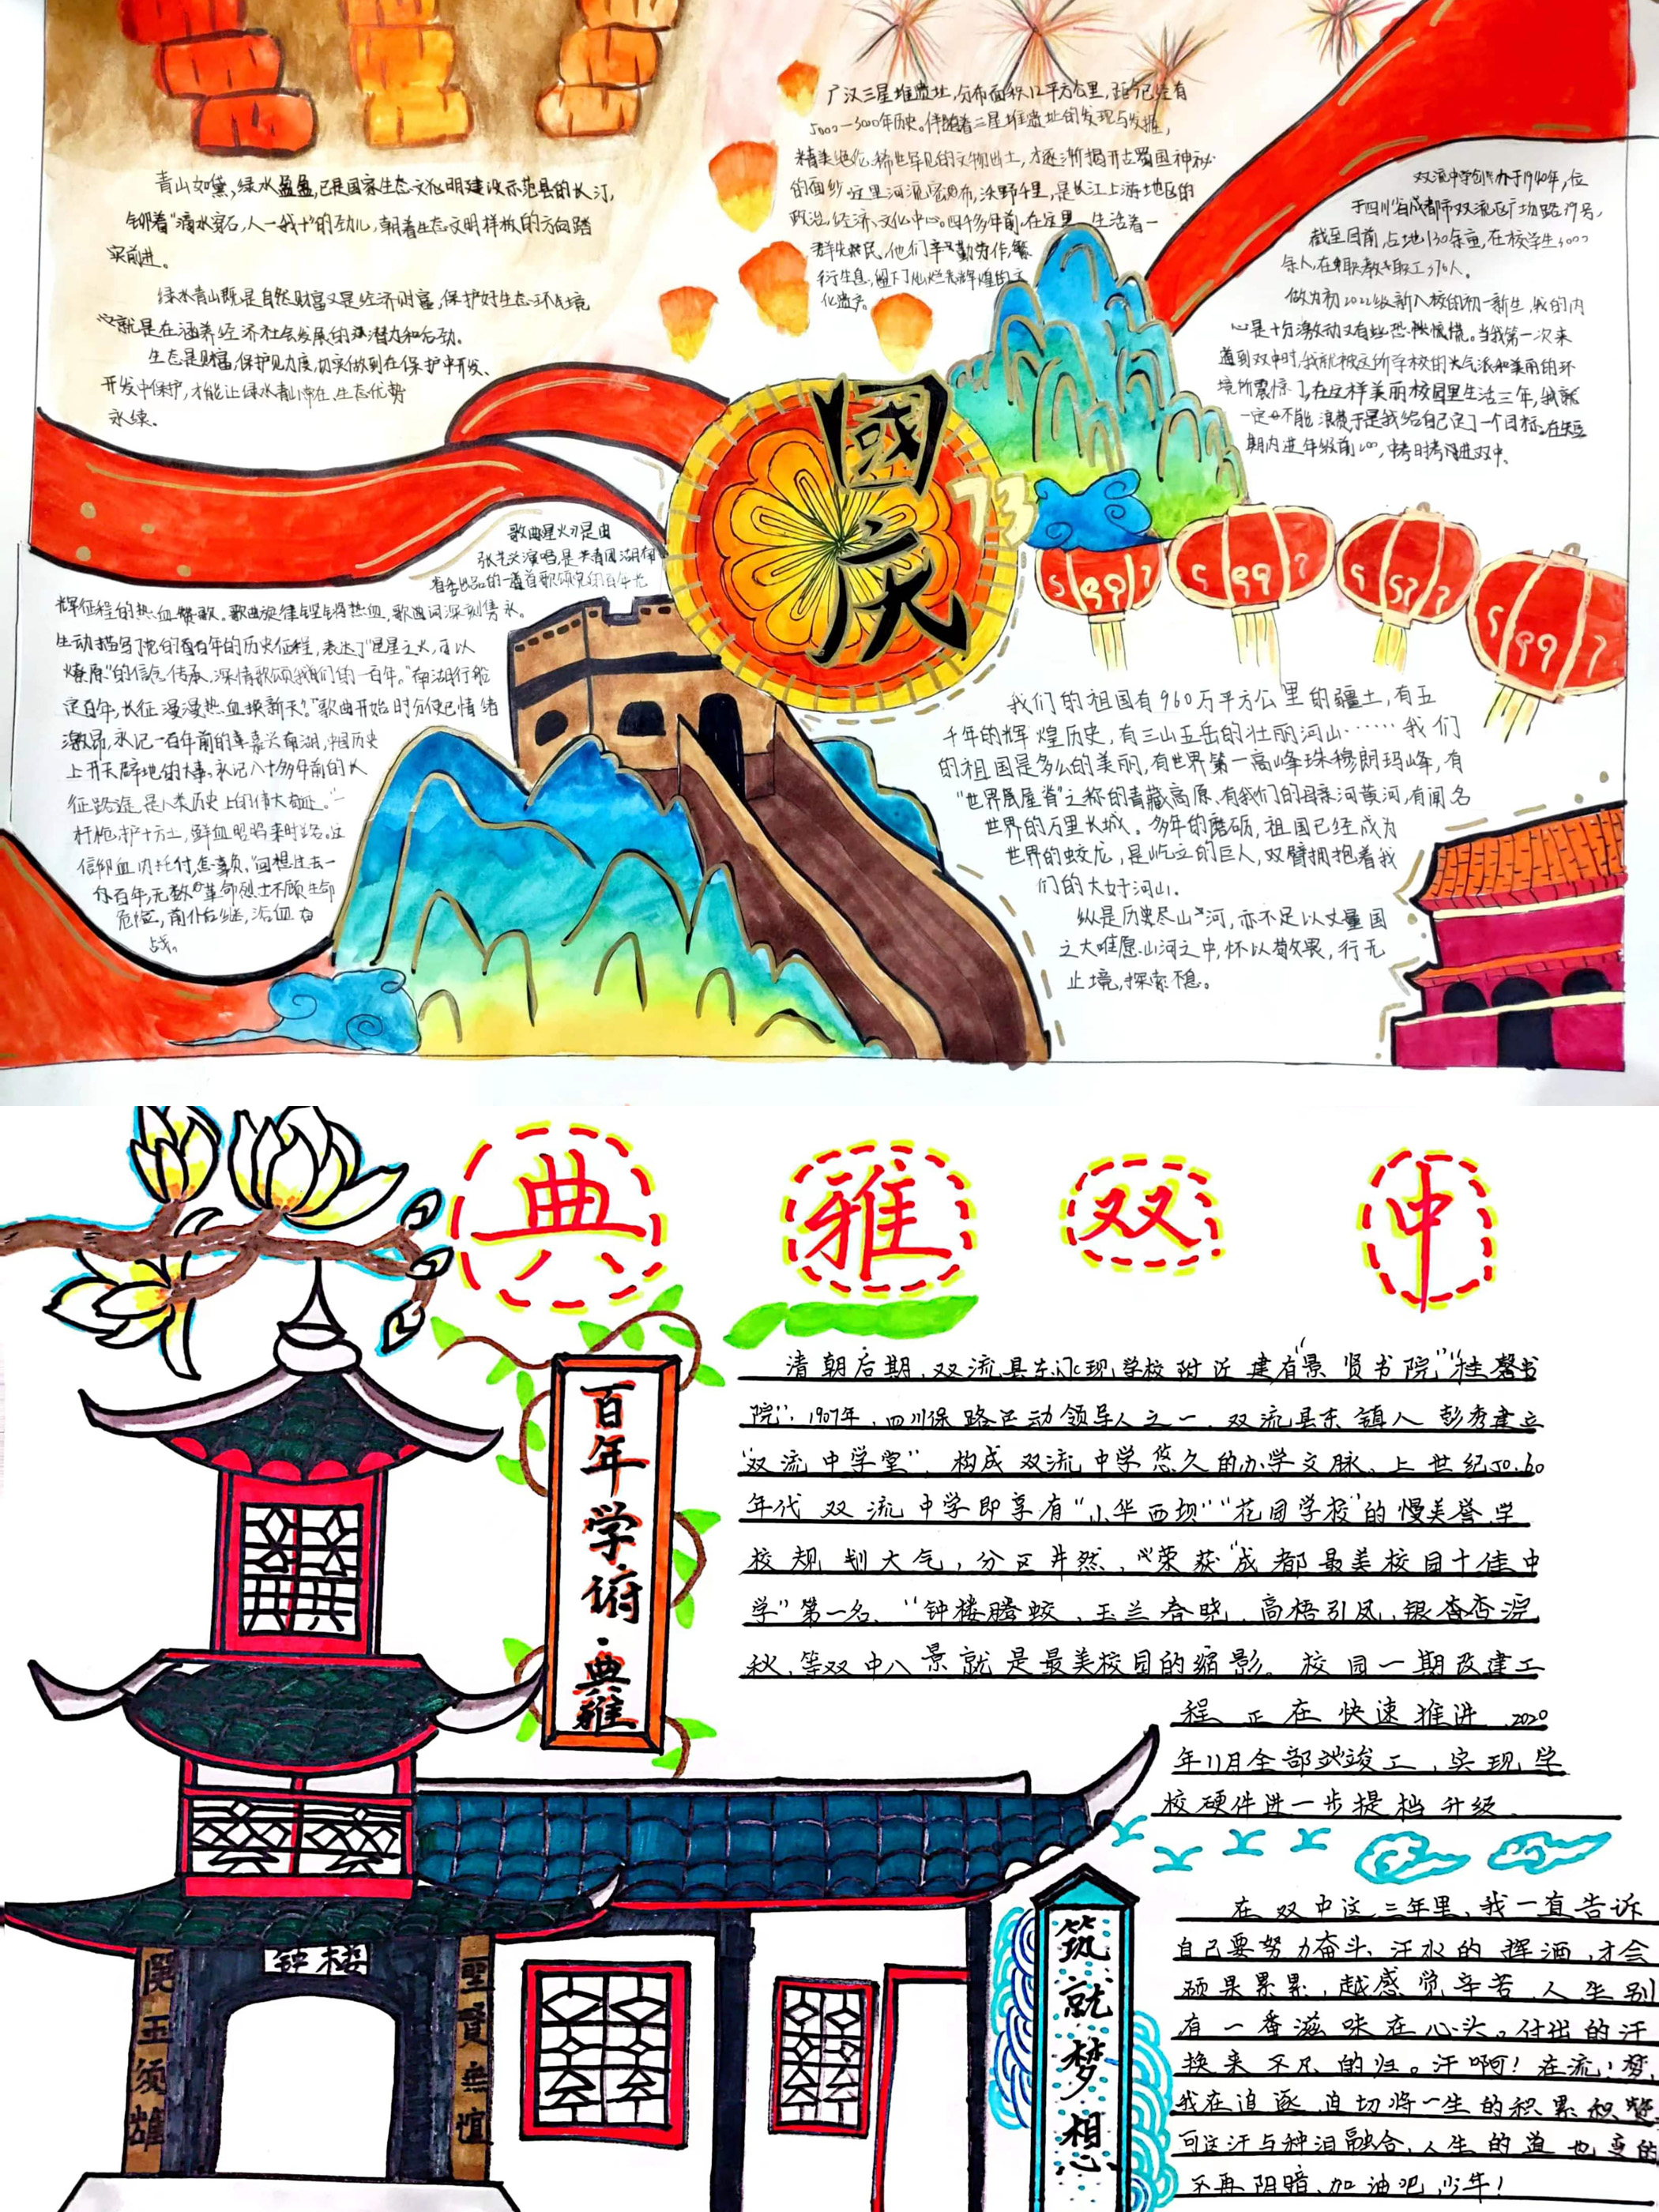 青山如黛,绿水盈盈,已是国家生态文化明建设示范县的长汀,
铆着"滴水穿石,人一我十"的劲儿,朝着生态文明样板的方向踏
实前进。
绿水青山既是自然财富又是经济财富,保护好生态环境
就是在涵养经济社会发展的潜力和后劲。
生态是财富,保护见力度,切实做到在保护中开发、
开发中保护,才能让绿水青山常在、生态优势
永续。
广汉三星堆遗址,分布面积12平方公里,距今已有
5000—3000年历史。伴随着三星堆遗址的发现与发掘,
精美绝伦、稀世罕见的文物出土,才逐渐揭开古蜀国神秘
的面纱。这里河流密布,沃野千里,是长江上游地区的
政治、经济、文化中心。四千多年前,在这里,生活着一
群先民,他们辛勤劳作,繁
衍生息,留下了他灿烂辉煌的文
化遗产。
双流中学创办于1940年,位
于四川省成都市双流区广场路19号,
截至目前,占地130余亩,在校学生3000
余人,在职教职工370人。
做为初2022级新入校的初一新生,我的内
心是十分激动又有些恐慌。当我第一次来
道到双中时,我就被这所学校的大气派和美丽的环
境所震惊了,在这样美丽校园里生活三年,我就
一定不能浪费于是我给自己定了一个目标。在短
期内进年级前100,中考时考进双中。
國
庆
73
5 99 7
5 99 7
5 99 7
歌曲星火是由
张艺兴演唱是共青团湖南
省委出品的一首歌颂党的百年光
辉征程的热血赞歌。歌曲旋律铿锵热血,歌曲词深刻隽永。
生动描写了党的百年的历史征程,表达了"星星之火,可以
燎原"的信念传承,深情歌颂我们的一百年。"南湖行船
定百年,长征漫漫热血换新天。"歌曲开始时分便已情绪
激昂,永记一百年前的嘉兴南湖,中国历史
上开天辟地的大事。永记八十多年前的长
征路途,是人类历史上的伟大奇迹。"一
杆枪护十方土,鲜血照亮来时路。这
信仰血肉托付,怎辜负。"回想过去一
百年,无数革命烈士不顾生命
危险,前仆后继,浴血奋
战。
我们的祖国有960万平方公里的疆土,有五
千年的辉煌历史,有三山五岳的壮丽河山······我们
的祖国是多么的美丽,有世界第一高峰珠穆朗玛峰,有
"世界屋脊"之称的青藏高原、有我们的母亲河黄河,有闻名
世界的万里长城。多年的磨砺,祖国已经成为
世界的蛟龙,是屹立的巨人,双臂拥抱着我
们的大好河山。
纵是历史尽山河,亦不足以丈量国
之大唯愿山河之中,怀以敬畏,行无
止境,探索不息。
典 雅 双 中
百年学府·典雅
清朝后期,双流县东门现学校附近建有"景贤书院""桂馨书
院"。1907年,四川保路运动领导人之一、双流县东镇人彭秀建立
"双流中学堂",构成双流中学悠久的办学文脉、上世纪50.60
年代双流中学即享有"小华西坝""花园学校"的美誉学
校规划大气,分区井然,荣获"成都最美校园十佳中
学"第一名、"钟楼腾蛟、玉兰春晓、高梧引凤,银杏浣
秋、等双中八景就是最美校园的缩影。校园一期改建工
程正在快速推进、2020
年11月全部竣工,实现学
校硬件进一步提档升级、
钟楼
聖賢無
须雄
筑就梦想
在双中这三年里,我一直告诉
自己要努力奋斗、汗水的挥洒,才会
硕果累累,越感觉辛苦、人生别
有一番滋味在心头。付出的汗
换来不凡的归。汗啊!在流!梦,
我在追逐,迫切将一生的积累积攒
可这汗与种泪融合,人生的道也变的
不再阴暗、加油吧,少年!